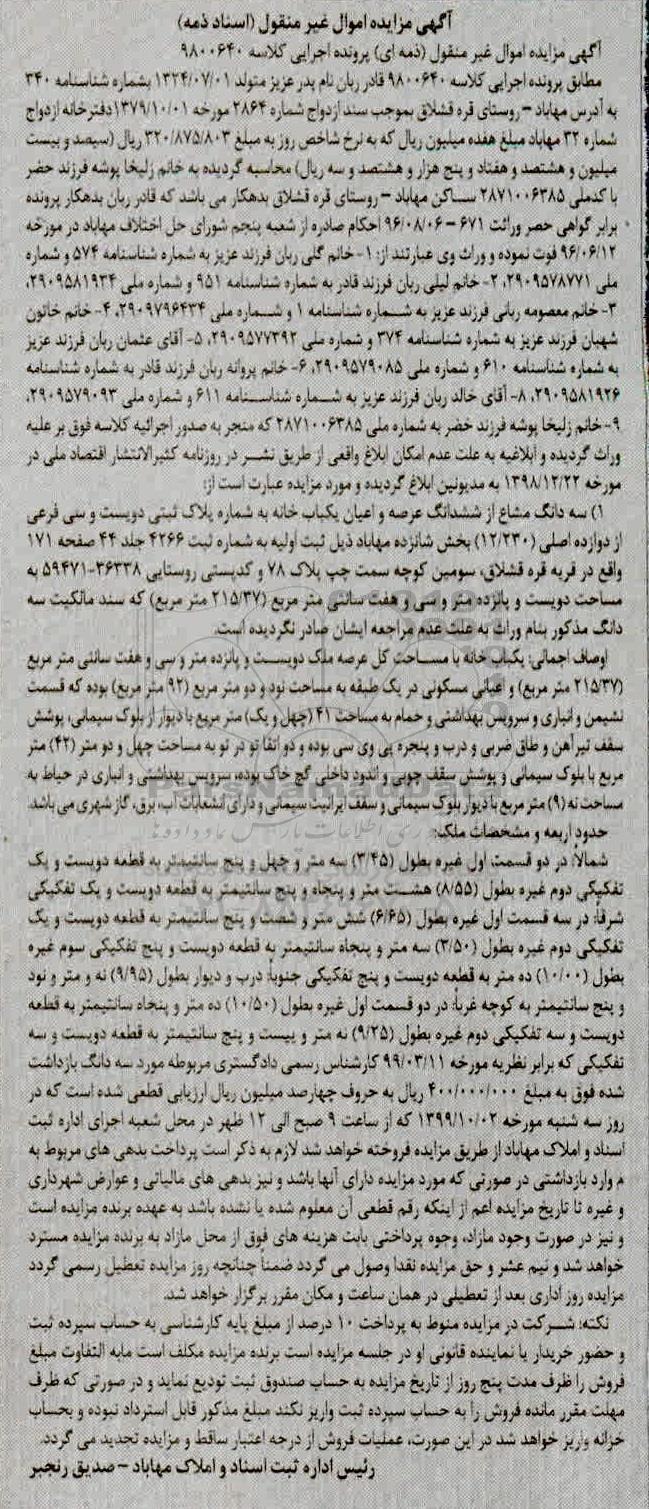 آگهی مزایده اموال غیر منقول (اسناد ذمه)
آگهی مزایده اموال غیر منقول (ذمه ای) پرونده اجرایی کلاسه ۹۸۰۰۶۴۰
مطابق پرونده اجرایی کلاسه ۹۸۰۰۶۴۰ قادر ربان نام پدر عزیز متولد ۱۳۲۴/۰۷/۰۱ بشماره شناسنامه ۳۴۰
به آدرس مهاباد – روستای قره قشلاق بموجب سند ازدواج شماره ۲۸۶۴ مورخه ۱۳۷۹/۱۰/۰۱دفترخانه ازدواج
شماره ۳۲ مهاباد مبلغ هفده میلیون ریال که به نرخ شاخص روز به مبلغ ۳۲۰/۸۷۵/۸۰۳ ریال (سیصد و بیست
میلیون و هشتصد و هفتاد و پنج هزار و هشتصد و سه ریال) محاسبه گردیده به خانم زلیخا پوشه فرزند حضر
با کدملی ۲۸۷۱۰۰۶۳۸۵ ساکن مهاباد – روستای قره قشلاق بدهکار می باشد که قادر ربان بدهکار پرونده
برابر گواهی حصر وراثت ۶۷۱ – ۹۶/۰۸/۰۶ احکام صادره از شعبه پنجم شورای حل اختلاف مهاباد در مورخه
۹۶/۰۶/۱۲ فوت نموده و وراث وی عبارتند از: ۱- خانم گلی ربان فرزند عزیز به شماره شناسنامه ۵۷۴ و شماره
ملی ۲۹۰۹۵۷۸۷۷۱، ۲- خانم لیلی ربان فرزند قادر به شماره شناسنامه ۹۵۱ و شماره ملی ۲۹۰۹۵۸۱۹۳۴،
۳- خانم معصومه ربانی فرزند عزیز به شماره شناسنامه ۱ و شماره ملی ۲۹۰۹۷۹۶۴۳۴، ۴- خانم خاتون
شهبان فرزند عزیز به شماره شناسنامه ۳۷۴ و شماره ملی ۲۹۰۹۵۷۷۳۹۲، ۵- آقای عثمان ربان فرزند عزیز
به شماره شناسنامه ۶۱۰ و شماره ملی ۲۹۰۹۵۷۹۰۸۵، ۶- خانم پروانه ربان فرزند قادر به شماره شناسنامه
۲۹۰۹۵۸۱۹۲۶، ۸- آقای خالد ربان فرزند عزیز به شماره شناسنامه ۶۱۱ و شماره ملی ۲۹۰۹۵۷۹۰۹۳،
۹- خانم زلیخا پوشه فرزند خضر به شماره ملی ۲۸۷۱۰۰۶۳۸۵ که منجر به صدور اجرائیه کلاسه فوق بر علیه
وراث گردیده و ابلاغیه به علت عدم امکان ابلاغ واقعی از طریق نشر در روزنامه کثیرالانتشار اقتصاد ملی در
مورخه ۱۳۹۸/۱۲/۲۲ به مدیونین ابلاغ گردیده و مورد مزایده عبارت است از:
۱) سه دانگ مشاع از ششدانگ عرصه و اعیان یکباب خانه به شماره پلاک ثبتی دویست و سی فرعی
از دوازده اصلی (۱۲/۲۳۰) بخش شانزده مهاباد ذیل ثبت اولیه به شماره ثبت ۴۲۶۶ جلد ۴۴ صفحه ۱۷۱
واقع در قریه قره قشلاق، سومین کوچه سمت چپ پلاک ۷۸ و کدپستی روستایی ۳۶۳۳۸-۵۹۴۷۱ به
مساحت دویست و پانزده متر و سی و هفت سانتی متر مربع (۲۱۵/۳۷ متر مربع) که سند مالکیت سه
دانگ مذکور بنام وراث به علت عدم مراجعه ایشان صادر نگردیده است.
اوصاف اجمالی: یکباب خانه با مساحت کل عرصه ملک دویست و پانزده متر و سی و هفت سانتی متر مربع
(۲۱۵/۳۷ متر مربع) و اعیانی مسکونی در یک طبقه به مساحت نود و دو متر مربع (۹۲ متر مربع) بوده که قسمت
نشیمن و انباری و سرویس بهداشتی و حمام به مساحت ۴۱ (چهل و یک) متر مربع با دیوار از بلوک سیمانی، پوشش
سقف تیرآهن و طاق ضربی و درب و پنجره پی وی سی بوده و دو اتقا تو در تو به مساحت چهل و دو متر (۴۲) متر
مربع با بلوک سیمانی و پوشش سقف چوبی و اندود داخلی گچ خاک بوده، سرویس بهداشتی و انباری در حیاط به
مساحت نه (۹) متر مربع با دیوار بلوک سیمانی و سقف ایرانیت سیمانی و دارای انشعابات آب، برق، گاز شهری می باشد.
حدود اربعه و مشخصات ملک:
شمالاً: در دو قسمت اول غیره بطول (۳/۴۵) سه متر و چهل و پنج سانتیمتر به قطعه دویست و یک
تفکیکی دوم غیره بطول (۸/۵۵) هشت متر و پنجاه و پنج سانتیمتر به قطعه دویست و یک تفکیکی
شرقاً: در سه قسمت اول غیره بطول (۶/۶۵) شش متر و شصت و پنج سانتیمتر به قطعه دویست و یک
تفکیکی دوم غیره بطول (۳/۵۰) سه متر و پنجاه سانتیمتر به قطعه دویست و پنج تفکیکی سوم غیره
بطول (۱۰/۰۰) ده متر به قطعه دویست و پنج تفکیکی جنوباً: درب و دیوار بطول (۹/۹۵) نه و متر و نود
و پنج سانتیمتر به کوچه غرباً: در دو قسمت اول غیره بطول (۱۰/۵۰) ده متر و پنجاه سانتیمتر به قطعه
دویست و سه تفکیکی دوم غیره بطول (۹/۲۵) نه متر و بیست و پنج سانتیمتر به قطعه دویست و سه
تفکیکی که برابر نظریه مورخه ۹۹/۰۳/۱۱ کارشناس رسمی دادگستری مربوطه مورد سه دانگ بازداشت
شده فوق به مبلغ ۴۰۰/۰۰۰/۰۰۰ ریال به حروف چهارصد میلیون ریال ارزیابی قطعی شده است که در
روز سه شنبه مورخه ۱۳۹۹/۱۰/۰۲ که از ساعت ۹ صبح الی ۱۲ ظهر در محل شعبه اجرای اداره ثبت
اسناد و املاک مهاباد از طریق مزایده فروخته خواهد شد لازم به ذکر است پرداخت بدهی های مربوط به
م وارد بازداشتی در صورتی که مورد مزایده دارای آنها باشد و نیز بدهی های مالیاتی و عوارض شهرداری
و غیره تا تاریخ مزایده اعم از اینکه رقم قطعی آن معلوم شده یا نشده باشد به عهده برنده مزایده است
و نیز در صورت وجود مازاد، وجوه پرداختی بابت هزینه های فوق از محل مازاد به برنده مزایده مسترد
خواهد شد و نیم عشر و حق مزایده نقدا وصول می گردد ضمناً چنانچه روز مزایده تعطیل رسمی گردد
مزایده روز اداری بعد از تعطیلی در همان ساعت و مکان مقرر برگزار خواهد شد.
نکته: شرکت در مزایده منوط به پرداخت ۱۰ درصد از مبلغ پایه کارشناسی به حساب سپرده ثبت
و حضور خریدار یا نماینده قانونی او در جلسه مزایده است برنده مزایده مکلف است مابه التفاوت مبلغ
فروش را ظرف مدت پنج روز از تاریخ مزایده به حساب صندوق ثبت تودیع نماید و در صورتی که ظرف
مهلت مقرر مانده فروش را به حساب سپرده ثبت واریز نکند مبلغ مذکور قابل استرداد نبوده و بحساب
خزانه واریز خواهد شد در این صورت، عملیات فروش از درجه اعتبار ساقط و مزایده تجدید می گردد.
رئیس اداره ثبت اسناد و املاک مهاباد – صدیق رنجبر